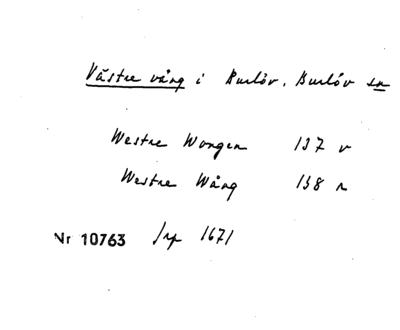 Västre vång i Burlöv, Burlöv sn
Westre Wongen 137 v
Westre Wång 138 r
Nr 10763 Jrp 1671